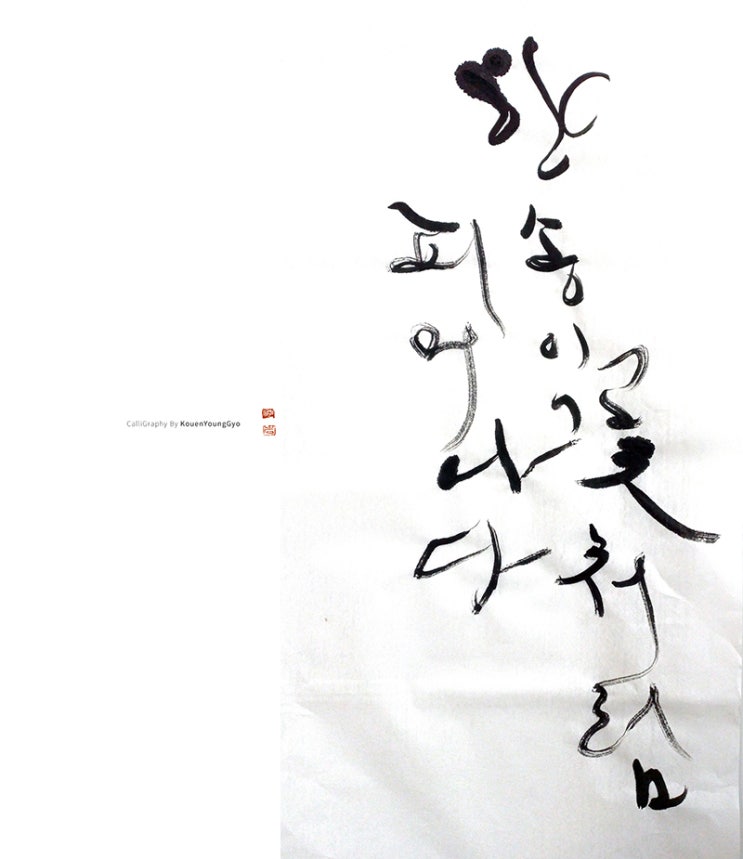 한송이꽃처럼
피어나다
CalliGraphy By KouenYoungGyo